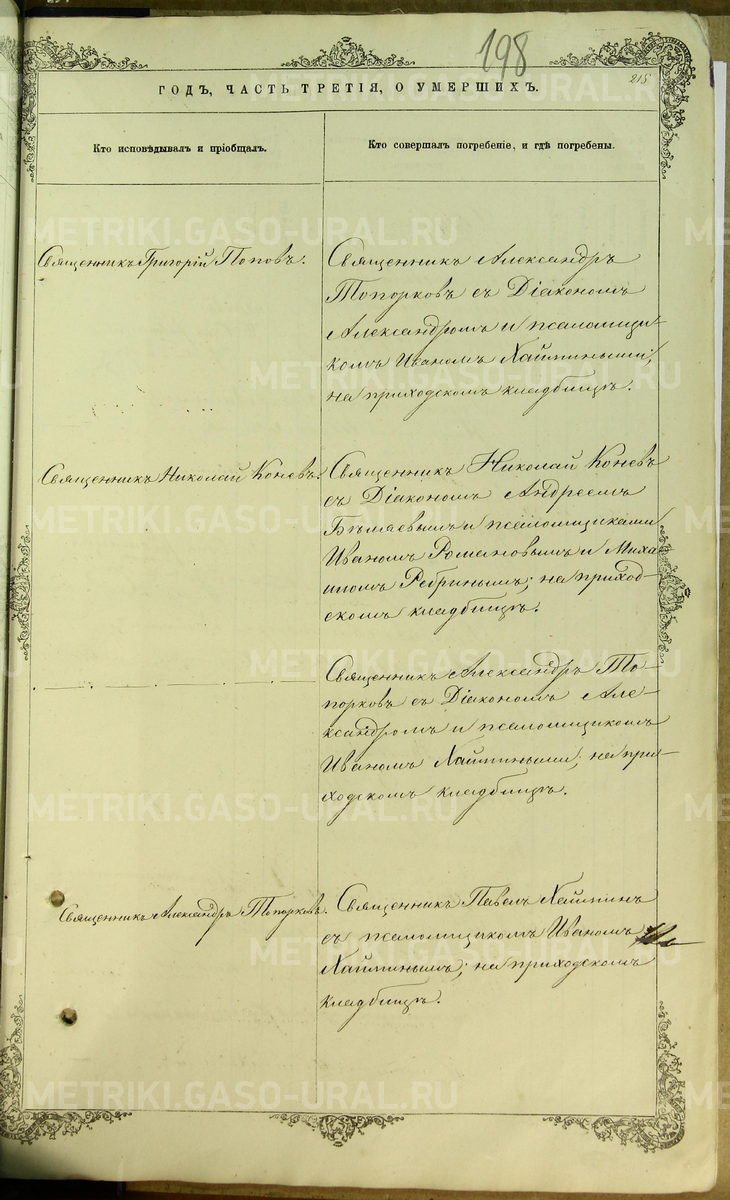 198
215
ГОДЪ, ЧАСТЬ ТРЕТІЯ, О УМЕРШИХЪ.
Кто исповѣдывалъ и пріобщалъ.
Кто совершалъ погребеніе, и гдѣ погребены.
Священникъ Григорій Поповъ.
Священникъ Александръ
Топорковъ съ Діакономъ
Александромъ и псаломщи-
комъ Иваномъ Хаймиными;
на приходскомъ кладбищѣ.
Священникъ Николай Коневъ.
Священникъ Николай Коневъ
съ Діакономъ Андреемъ
Бѣляевымъ и псаломщиками
Иваномъ Романовымъ и Миха
иломъ Ребринымъ; на приход-
скомъ кладбищѣ.
Священникъ Александръ То-
порковъ съ Діакономъ Але-
ксандромъ и псаломщикомъ
Иваномъ Хаймиными; на при-
ходскомъ кладбищѣ.
Священникъ Александръ Топорковъ.
Священникъ Павелъ Хайминъ
съ псаломщикомъ Иваномъ
Хайминымъ; на приходскомъ
кладбищѣ.
METRIKI.GASO-URAL.RU